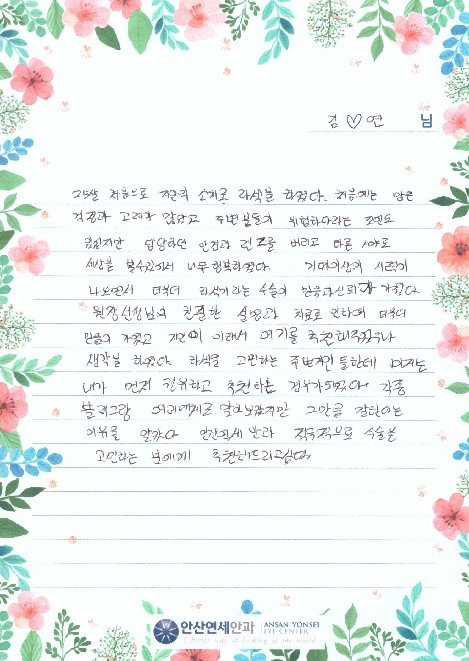 김♡연 님
25살 처음으로 지인의 소개로 라식을 하였다. 처음에는 많은
걱정과 고려가 많았고 주변분들의 위험하다라는 조언도
들었지만 답답하던 안경과 렌즈를 버리고 다른 시야로
세상을 볼수있어서 너무 행복하였다. 기대이상의 시력이
나오면서 더욱더 라식이라는 수술의 믿음과신뢰가 가졌다.
원장선생님의 친절한 설명과 치료로 인하여 더욱더
믿음이 가졌고 지인이 이래서 여기를 추천해줬구나
생각을 하였다. 라식을 고민하는 주변지인들한테 이제는
내가 먼저 권유하고 추천하는 경우가되었다. 각종
블로그랑 여러매체로 알아보았지만 그만큼 잘하는
이유를 알았다 안산연세안과 적극적으로 수술을
고민하는 분에게 추천해드리고싶다.
안산연세안과 ANSAN YONSEI EYE CENTER
A better way of looking at the world